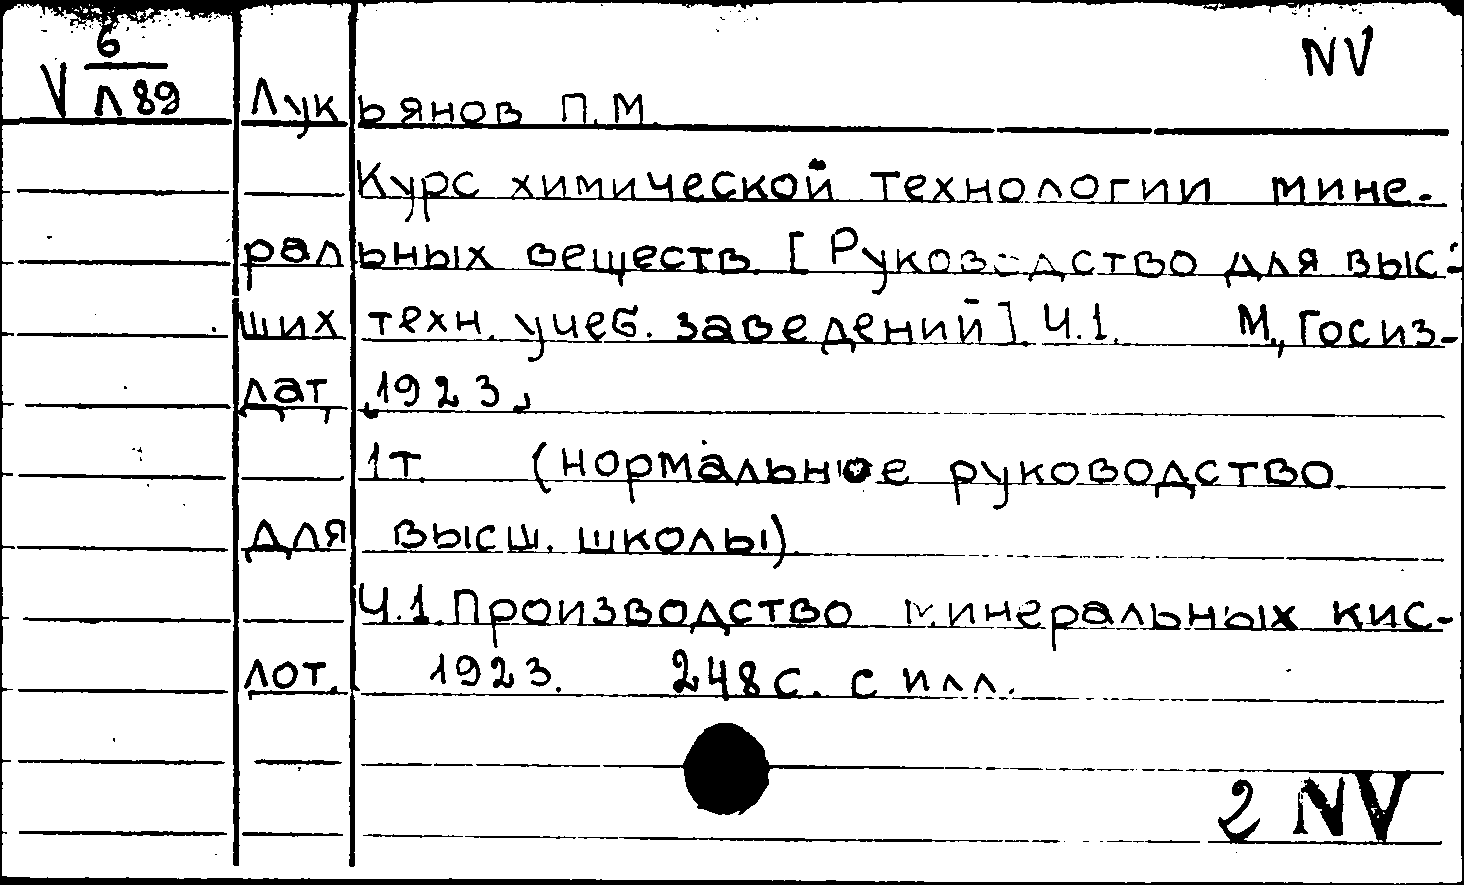 6 NV
V Л89 Лукьянов П.М.
Курс химической технологии мине-
ральных веществ. [Руководство для выс-
ших техн. учеб. заведений]. Ч.1. М., Госиз-
дат, 1923,
1т. (нормальное руководство
для высш. школы).
Ч.1. Производство минеральных кис-
лот. 1923. 248с. с илл.
2 NV